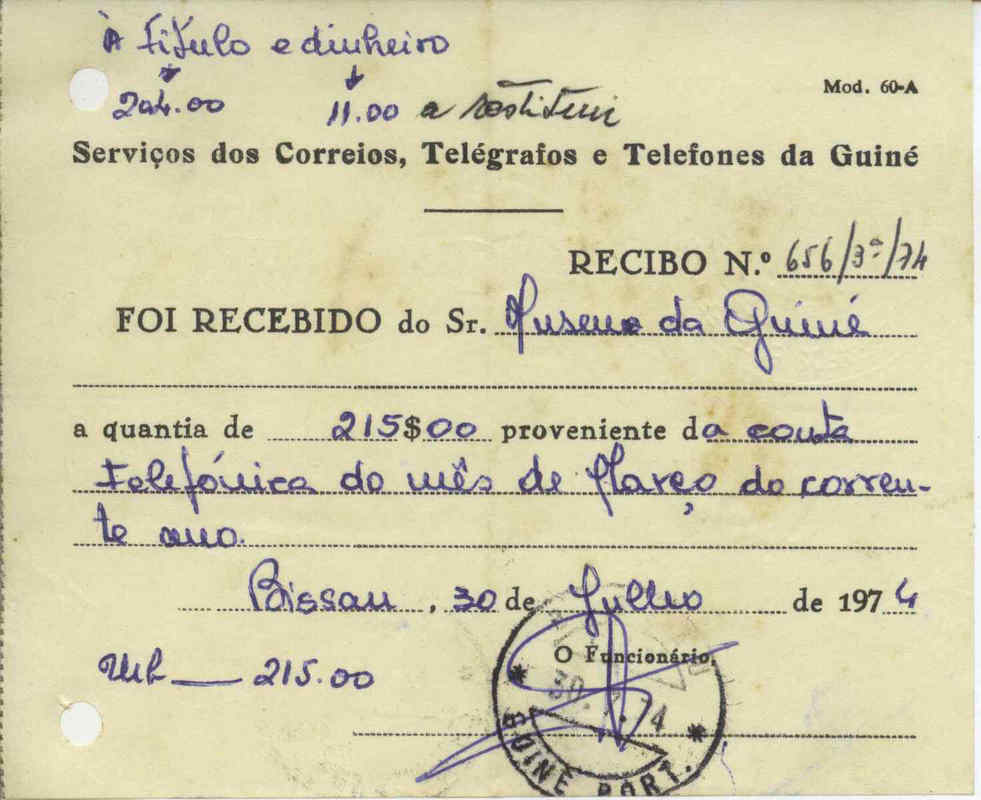 À título e dinheiro
204.00 11.00 a restituir
Mod. 60-A
Serviços dos Correios, Telégrafos e Telefones da Guiné
RECIBO N.º 656/3ª/74
FOI RECEBIDO do Sr. Museu da Guiné
a quantia de 215$00 proveniente da conta
telefónica do mês de Março do corren-
te ano.
Bissau, 30 de Julho de 1974
O Funcionário,
215.00
30.7.74
GUINÉ PORT.